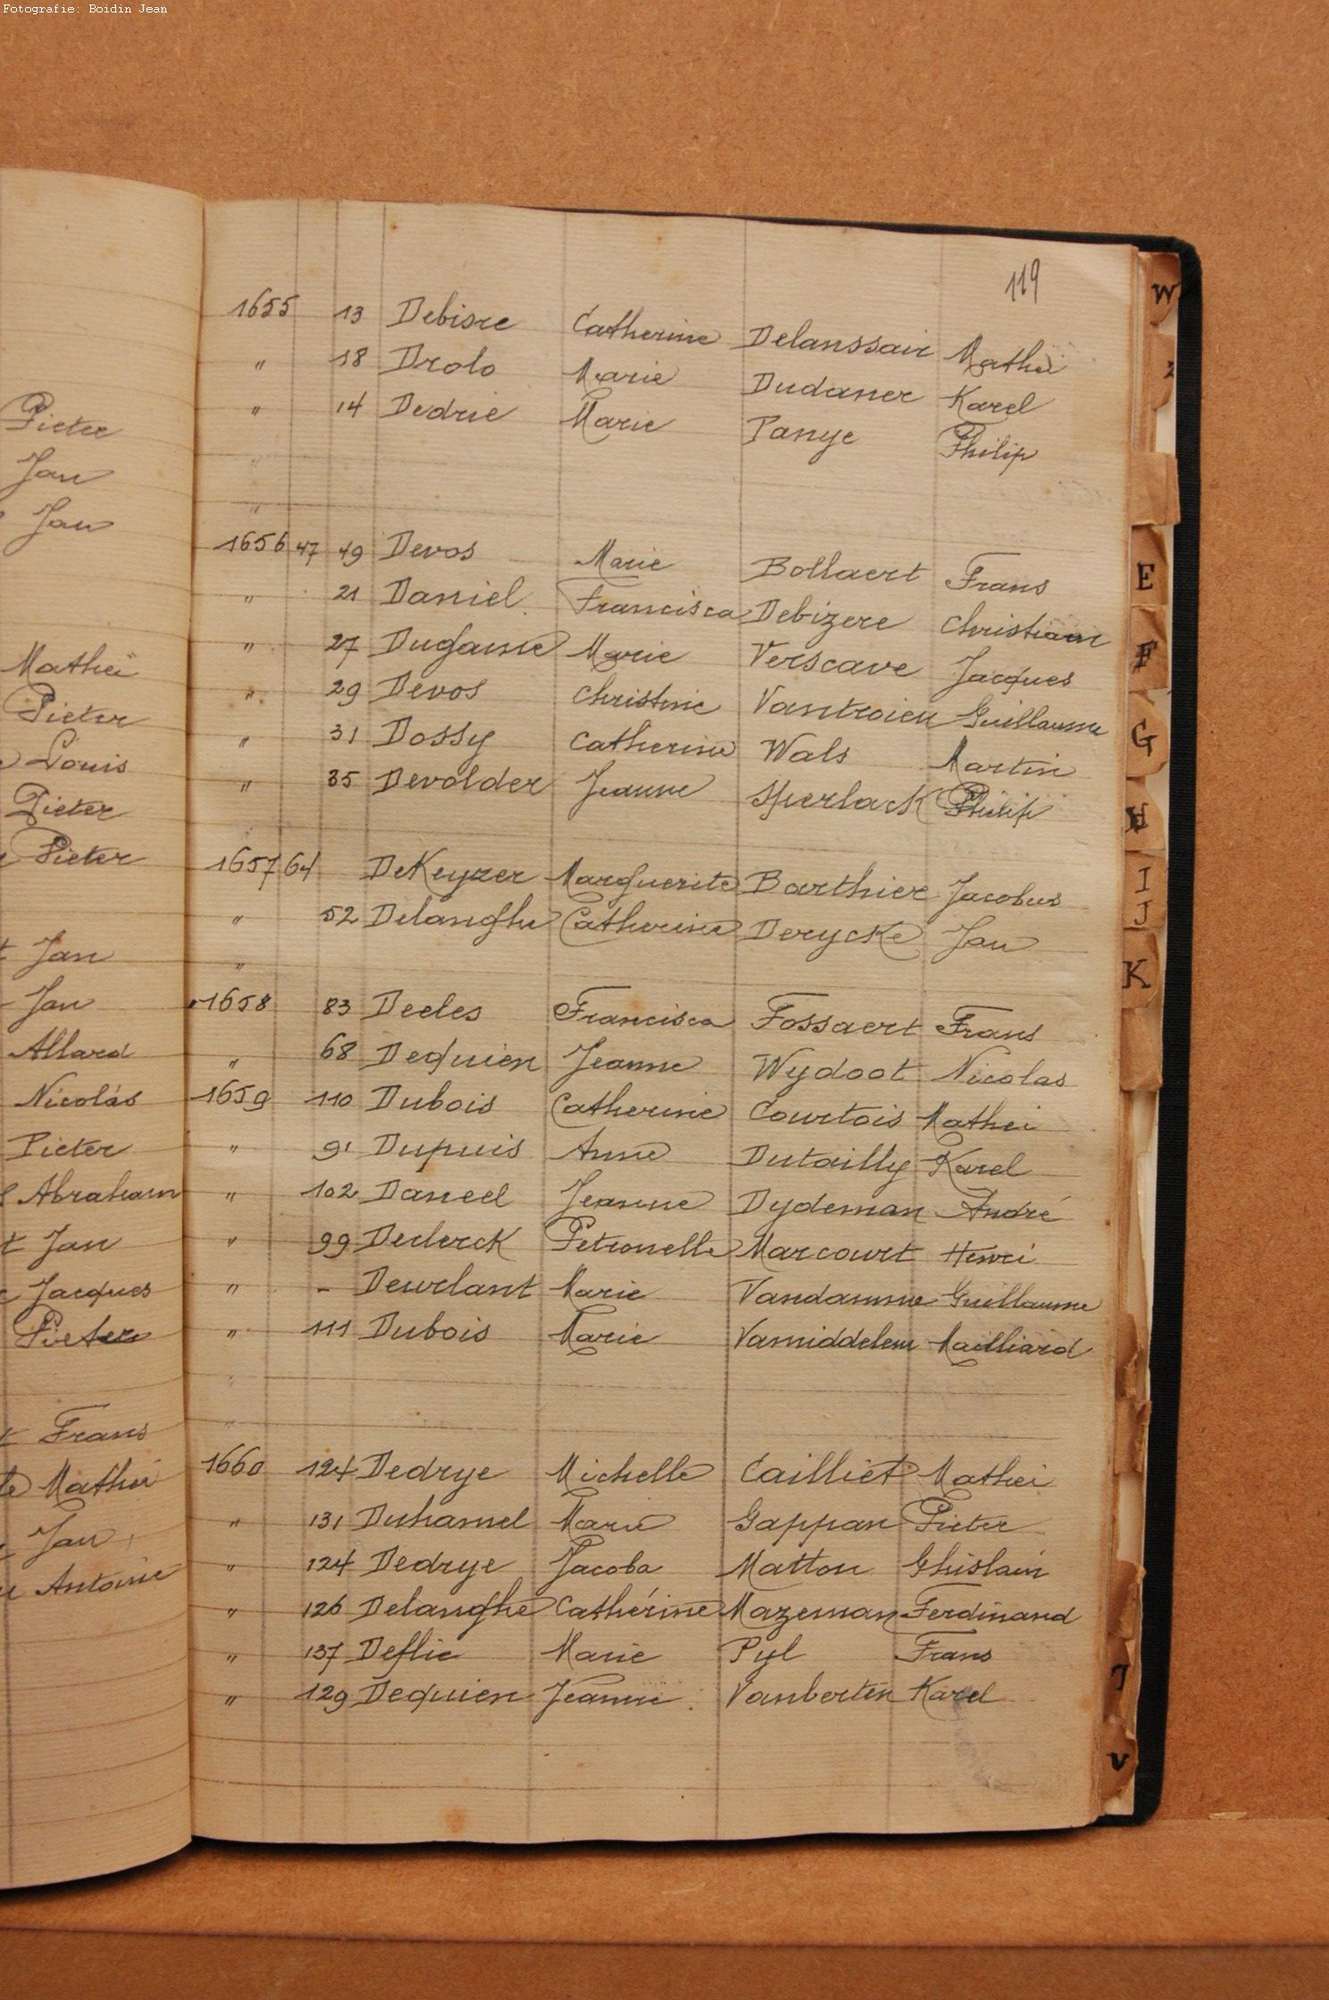 Fotografie: Boidin Jean
119
Pieter
Jan
Jan
Matheï
Pieter
Louis
Pieter
Pieter
Jan
Jan
Allard
Nicolás
Pieter
Abraham
Jan
Jacques
Pieter
Frans
Matheï
Jan
Antoine
1655 13 Debisre Catherine Delanssair Matheï
" 18 Drolo Marie Dudaner Karel
" 14 Dedrie Marie Panye Philip
"
"
1656 47 49 Devos Marie Bollaert Frans
" 21 Daniel Francisca Debizere Christiaen
" 27 Dugamé Marie Verscave Jacques
" 29 Devos Christine Vantroieu Guillaume
" 31 Dossy Catherine Wals Martin
" 35 Devolder Jeanne Sperlack Philip
1657 64 DeKeyzer Marguerite Barthier Jacobus
" 52 Delanghe Catherine Derycke Jan
"
1658 83 Decles Francisca Fossaert Frans
" 68 Dequien Jeanne Wydoot Nicolas
1659 110 Dubois Catherine Courtois Mathei
" 91 Dupuis Anne Dutailly Karel
" 102 Daneel Jeanne Dydeman André
" 99 Declerck Petronelle Marcourt Henri
" - Deurlant Marie Vandamme Guillaume
" 111 Dubois Marie Vanniddelem Mailliard
"
"
1660 124 Dedrye Michelle Cailliet Mathei
" 131 Duhamel Marie Gappan Pieter
" 124 Dedrye Jacoba Matton Ghislain
" 126 Delanghe Cathérine Mazeman Ferdinand
" 137 Deflie Marie Pyl Frans
" 129 Dequien Jeanne Vanberten Karel
W
Z
E
F
G
H
I
J
K
T
V